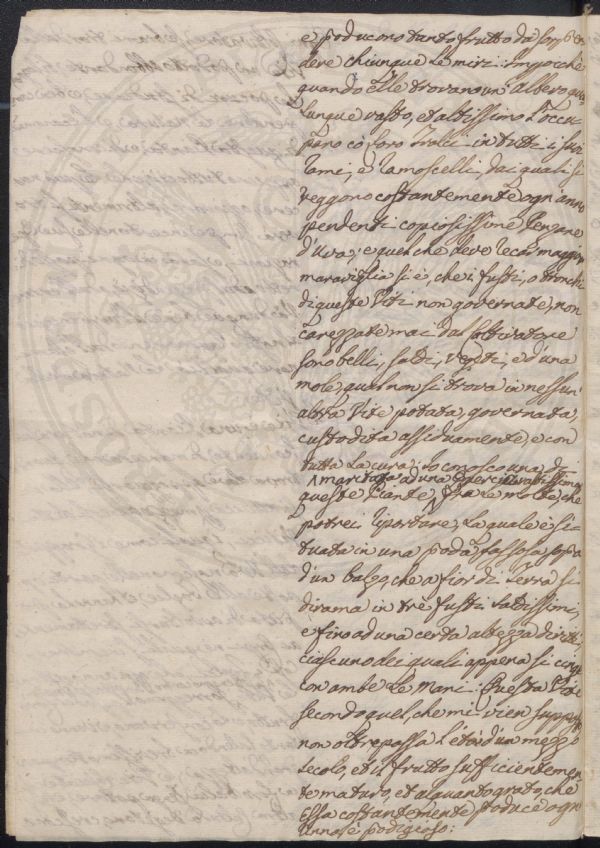 e producono tanto frutto da sorpren
dere chiunque le miri: imperochè
quando elle trovano un albero qua
lunque vasto, et altissimo l'occu
pano co' loro Tralci in tutti i suoi
rami, e ramoscelli, dai quali si
veggono costantemente ogn anno
pendenti copiosissime
d'Uva; e quel che deve recar maggior
maraviglia si è, che i fusti, o tronchi
di queste Viti non governate, non
carezzate mai dal Coltivatore
sono belli, saldi, vegeti, e d'una
mole, qual non si trova in nessun'
altra Vite potata, governata,
custodita assiduamente, e con
tutta la cura: Io conosco una di
maritata ad una Quercia vastissima
queste Piante, fra le molte, che
potrei riportare, la quale è si-
tuata in una sassosa sopra
d'un balzo, che a fior di Terra si
dirama in tre fusti saldissimi,
e fino ad una certa altezza diritti,
ciascuno dei quali appena si cinge
con ambe le mani: Questa Vite
secondo quel, che mi vien supposto
non oltrepassa l'età d'un mezzo
secolo, et il frutto sufficientemen
te maturo, et alquanto grato, che
Essa costantemente produce ogn
anno è prodigioso: